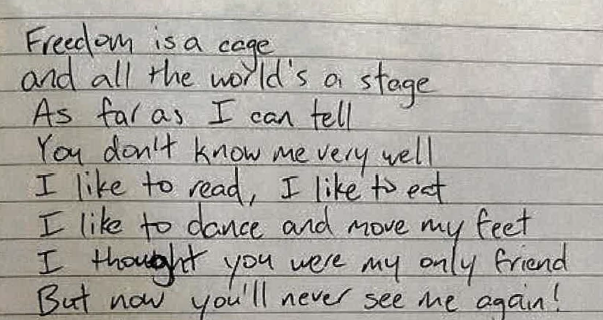 Freedom is a cage
and all the world's a stage
As far as I can tell
You don't know me very well
I like to read, I like to eat
I like to dance and move my feet
I thought you were my only friend
But now you'll never see me again!